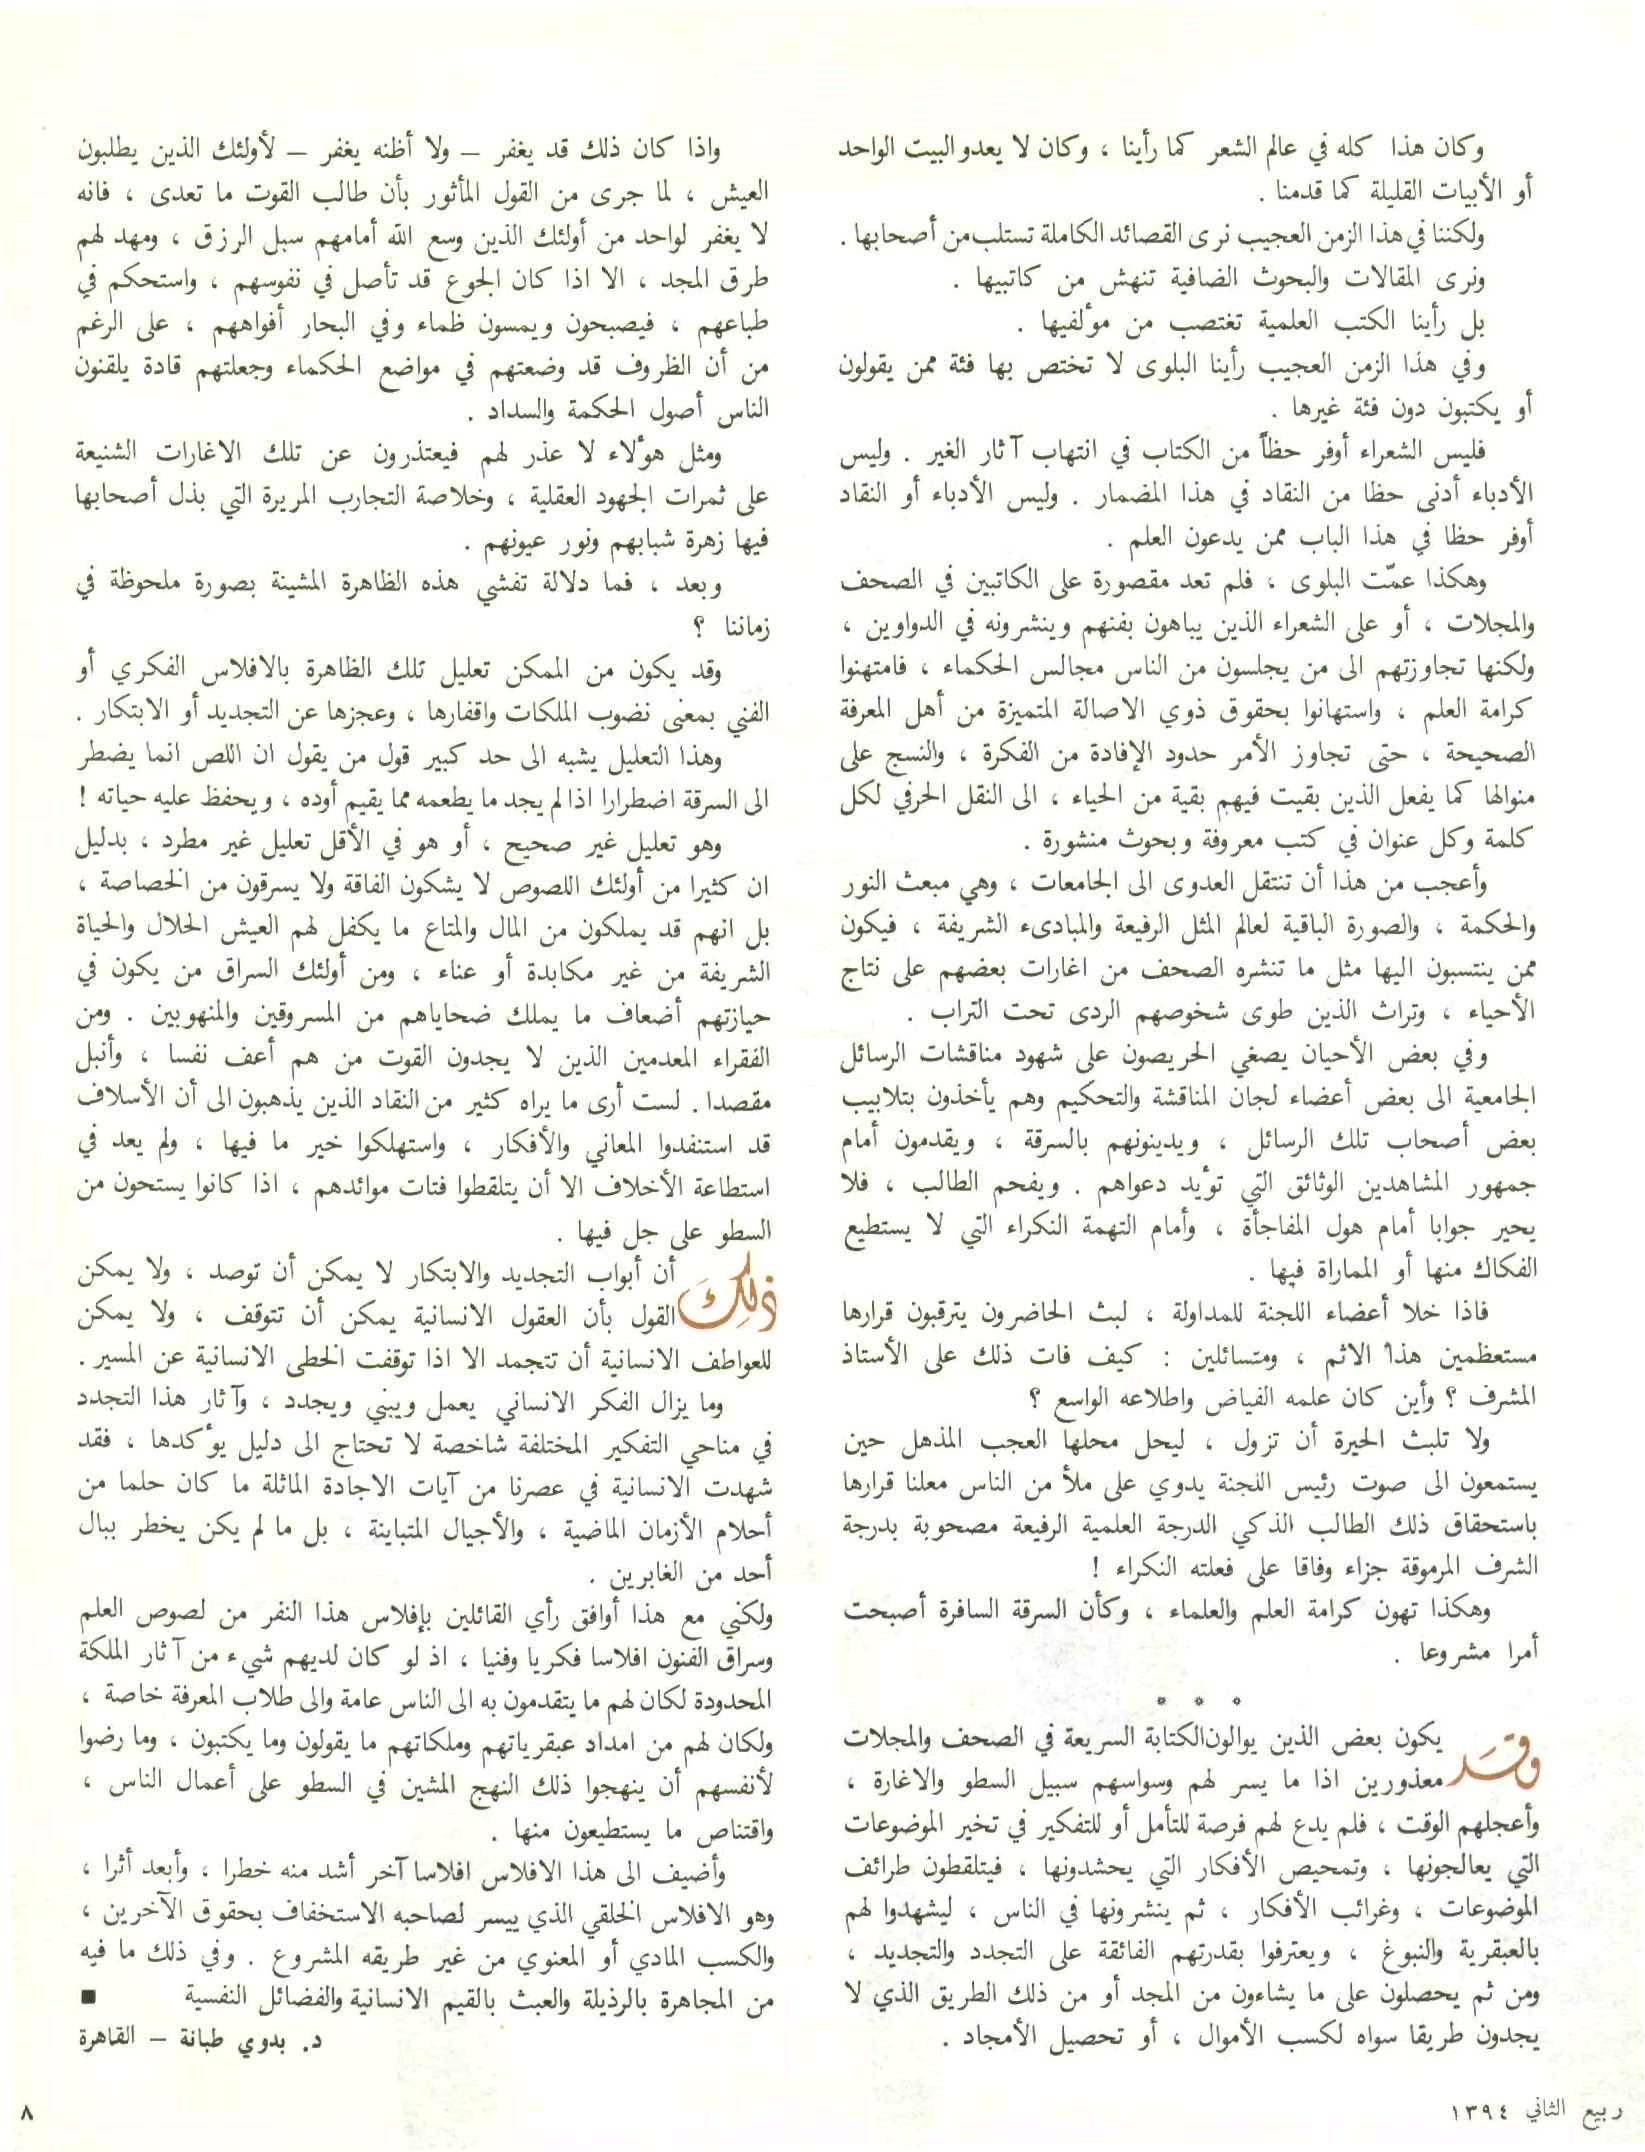 وكان هذا كله في عالم الشعر كما رأينا ، وكان لا يعدو البيت الواحد
أو الأبيات القليلة كما قدمنا .
ولكننا في هذا الزمن العجيب نرى القصائد الكاملة تستلب من أصحابها .
ونرى المقالات والبحوث الضافية تنهش من كاتبيها .
بل رأينا الكتب العلمية تغتصب من مؤلفيها .
وفي هذا الزمن العجيب رأينا البلوى لا تختص بها فئة ممن يقولون
أو يكتبون دون فئة غيرها .
فليس الشعراء أوفر حظاً من الكتاب في انتهاب آثار الغير . وليس
الأدباء أدنى حظا من النقاد في هذا المضمار . وليس الأدباء أو النقاد
أوفر حظا في هذا الباب ممن يدعون العلم .
وهكذا عمّت البلوى ، فلم تعد مقصورة على الكاتبين في الصحف
والمجلات ، أو على الشعراء الذين يباهون بفنهم وينشرونه في الدواوين ،
ولكنها تجاوزتهم الى من يجلسون من الناس مجالس الحكماء ، فامتهنوا
كرامة العلم ، واستهانوا بحقوق ذوي الاصالة المتميزة من أهل المعرفة
الصحيحة ، حتى تجاوز الأمر حدود الإفادة من الفكرة ، والنسج على
منوالها كما يفعل الذين بقيت فيهم بقية من الحياء ، الى النقل الحرفي لكل
كلمة وكل عنوان في كتب معروفة وبحوث منشورة .
وأعجب من هذا أن تنتقل العدوى الى الجامعات ، وهي مبعث النور
والحكمة ، والصورة الباقية لعالم المثل الرفيعة والمبادىء الشريفة ، فيكون
ممن ينتسبون اليها مثل ما تنشره الصحف من اغارات بعضهم على نتاج
الأحياء ، وتراث الذين طوى شخوصهم الردى تحت التراب .
وفي بعض الأحيان يصغي الحريصون على شهود مناقشات الرسائل
الجامعية الى بعض أعضاء لجان المناقشة والتحكيم وهم يأخذون بتلابيب
بعض أصحاب تلك الرسائل ، ويدينونهم بالسرقة ، ويقدمون أمام
جمهور المشاهدين الوثائق التي تؤيد دعواهم . ويفحم الطالب ، فلا
يحير جوابا أمام هول المفاجأة ، وأمام التهمة النكراء التي لا يستطيع
الفكاك منها أو المماراة فيها .
فاذا خلا أعضاء اللجنة للمداولة ، لبث الحاضرون يترقبون قرارها
مستعظمين هذا الاثم ، ومتسائلين : كيف فات ذلك على الأستاذ
المشرف ؟ وأين كان علمه الفياض واطلاعه الواسع ؟
ولا تلبث الحيرة أن تزول ، ليحل محلها العجب المذهل حين
يستمعون الى صوت رئيس اللجنة يدوي على ملأ من الناس معلنا قرارها
باستحقاق ذلك الطالب الذكي الدرجة العلمية الرفيعة مصحوبة بدرجة
الشرف المرموقة جزاء وفاقا على فعلته النكراء !
وهكذا تهون كرامة العلم والعلماء ، وكأن السرقة السافرة أصبحت
أمرا مشروعا .
* * *
وقد يكون بعض الذين يوالون الكتابة السريعة في الصحف والمجلات
معذورين اذا ما يسر لهم وسواسهم سبيل السطو والاغارة ،
وأعجلهم الوقت ، فلم يدع لهم فرصة للتأمل أو للتفكير في تخير الموضوعات
التي يعالجونها ، وتمحيص الأفكار التي يحشدونها ، فيتلقطون طرائف
الموضوعات ، وغرائب الأفكار ، ثم ينشرونها في الناس ، ليشهدوا لهم
بالعبقرية والنبوغ ، ويعترفوا بقدرتهم الفائقة على التجدد والتجديد ،
ومن ثم يحصلون على ما يشاءون من المجد أو من ذلك الطريق الذي لا
يجدون طريقا سواه لكسب الأموال ، أو تحصيل الأمجاد .
واذا كان ذلك قد يغفر – ولا أظنه يغفر – لأولئك الذين يطلبون
العيش ، لما جرى من القول المأثور بأن طالب القوت ما تعدى ، فانه
لا يغفر لواحد من أولئك الذين وسع الله أمامهم سبل الرزق ، ومهد لهم
طرق المجد ، الا اذا كان الجوع قد تأصل في نفوسهم ، واستحكم في
طباعهم ، فيصبحون ويمسون ظماء وفي البحار أفواههم ، على الرغم
من أن الظروف قد وضعتهم في مواضع الحكماء وجعلتهم قادة يلقنون
الناس أصول الحكمة والسداد .
ومثل هؤلاء لا عذر لهم فيعتذرون عن تلك الاغارات الشنيعة
على ثمرات الجهود العقلية ، وخلاصة التجارب المريرة التي بذل أصحابها
فيها زهرة شبابهم ونور عيونهم .
وبعد ، فما دلالة تفشي هذه الظاهرة المشينة بصورة ملحوظة في
زماننا ؟
وقد يكون من الممكن تعليل تلك الظاهرة بالافلاس الفكري أو
الفني بمعنى نضوب الملكات واقفارها ، وعجزها عن التجديد أو الابتكار .
وهذا التعليل يشبه الى حد كبير قول من يقول ان اللص انما يضطر
الى السرقة اضطرارا اذا لم يجد ما يطعمه مما يقيم أوده ، ويحفظ عليه حياته !
وهو تعليل غير صحيح ، أو هو في الأقل تعليل غير مطرد ، بدليل
ان كثيرا من أولئك اللصوص لا يشكون الفاقة ولا يسرقون من الخصاصة ،
بل انهم قد يملكون من المال والمتاع ما يكفل لهم العيش الحلال والحياة
الشريفة من غير مكابدة أو عناء ، ومن أولئك السراق من يكون في
حيازتهم أضعاف ما يملك ضحاياهم من المسروقين والمنهوبين . ومن
الفقراء المعدمين الذين لا يجدون القوت من هم أعف نفسا ، وأنبل
مقصدا . لست أرى ما يراه كثير من النقاد الذين يذهبون الى أن الأسلاف
قد استنفدوا المعاني والأفكار ، واستهلكوا خير ما فيها ، ولم يعد في
استطاعة الأخلاف الا أن يتلقطوا فتات موائدهم ، اذا كانوا يستحون من
السطو على جل فيها .
ذلك أن أبواب التجديد والابتكار لا يمكن أن توصد ، ولا يمكن
القول بأن العقول الانسانية يمكن أن تتوقف ، ولا يمكن
للعواطف الانسانية أن تتجمد الا اذا توقفت الخطى الانسانية عن المسير .
وما يزال الفكر الانساني يعمل ويبني ويجدد ، وآثار هذا التجدد
في مناحي التفكير المختلفة شاخصة لا تحتاج الى دليل يؤكدها ، فقد
شهدت الانسانية في عصرنا من آيات الاجادة الماثلة ما كان حلما من
أحلام الأزمان الماضية ، والأجيال المتباينة ، بل ما لم يكن يخطر ببال
أحد من الغابرين .
ولكني مع هذا أوافق رأي القائلين بإفلاس هذا النفر من لصوص العلم
وسراق الفنون افلاسا فكريا وفنيا ، اذ لو كان لديهم شيء من آثار الملكة
المحدودة لكان لهم ما يتقدمون به الى الناس عامة والى طلاب المعرفة خاصة ،
ولكان لهم من امداد عبقرياتهم وملكاتهم ما يقولون وما يكتبون ، وما رضوا
لأنفسهم أن ينهجوا ذلك النهج المشين في السطو على أعمال الناس ،
واقتناص ما يستطيعون منها .
وأضيف الى هذا الافلاس افلاسا آخر أشد منه خطرا ، وأبعد أثرا ،
وهو الافلاس الخلقي الذي ييسر لصاحبه الاستخفاف بحقوق الآخرين ،
والكسب المادي أو المعنوي من غير طريقه المشروع . وفي ذلك ما فيه
من المجاهرة بالرذيلة والعبث بالقيم الانسانية والفضائل النفسية ■
د. بدوي طبانة – القاهرة
ربيع الثاني ١٣٩٤
٨